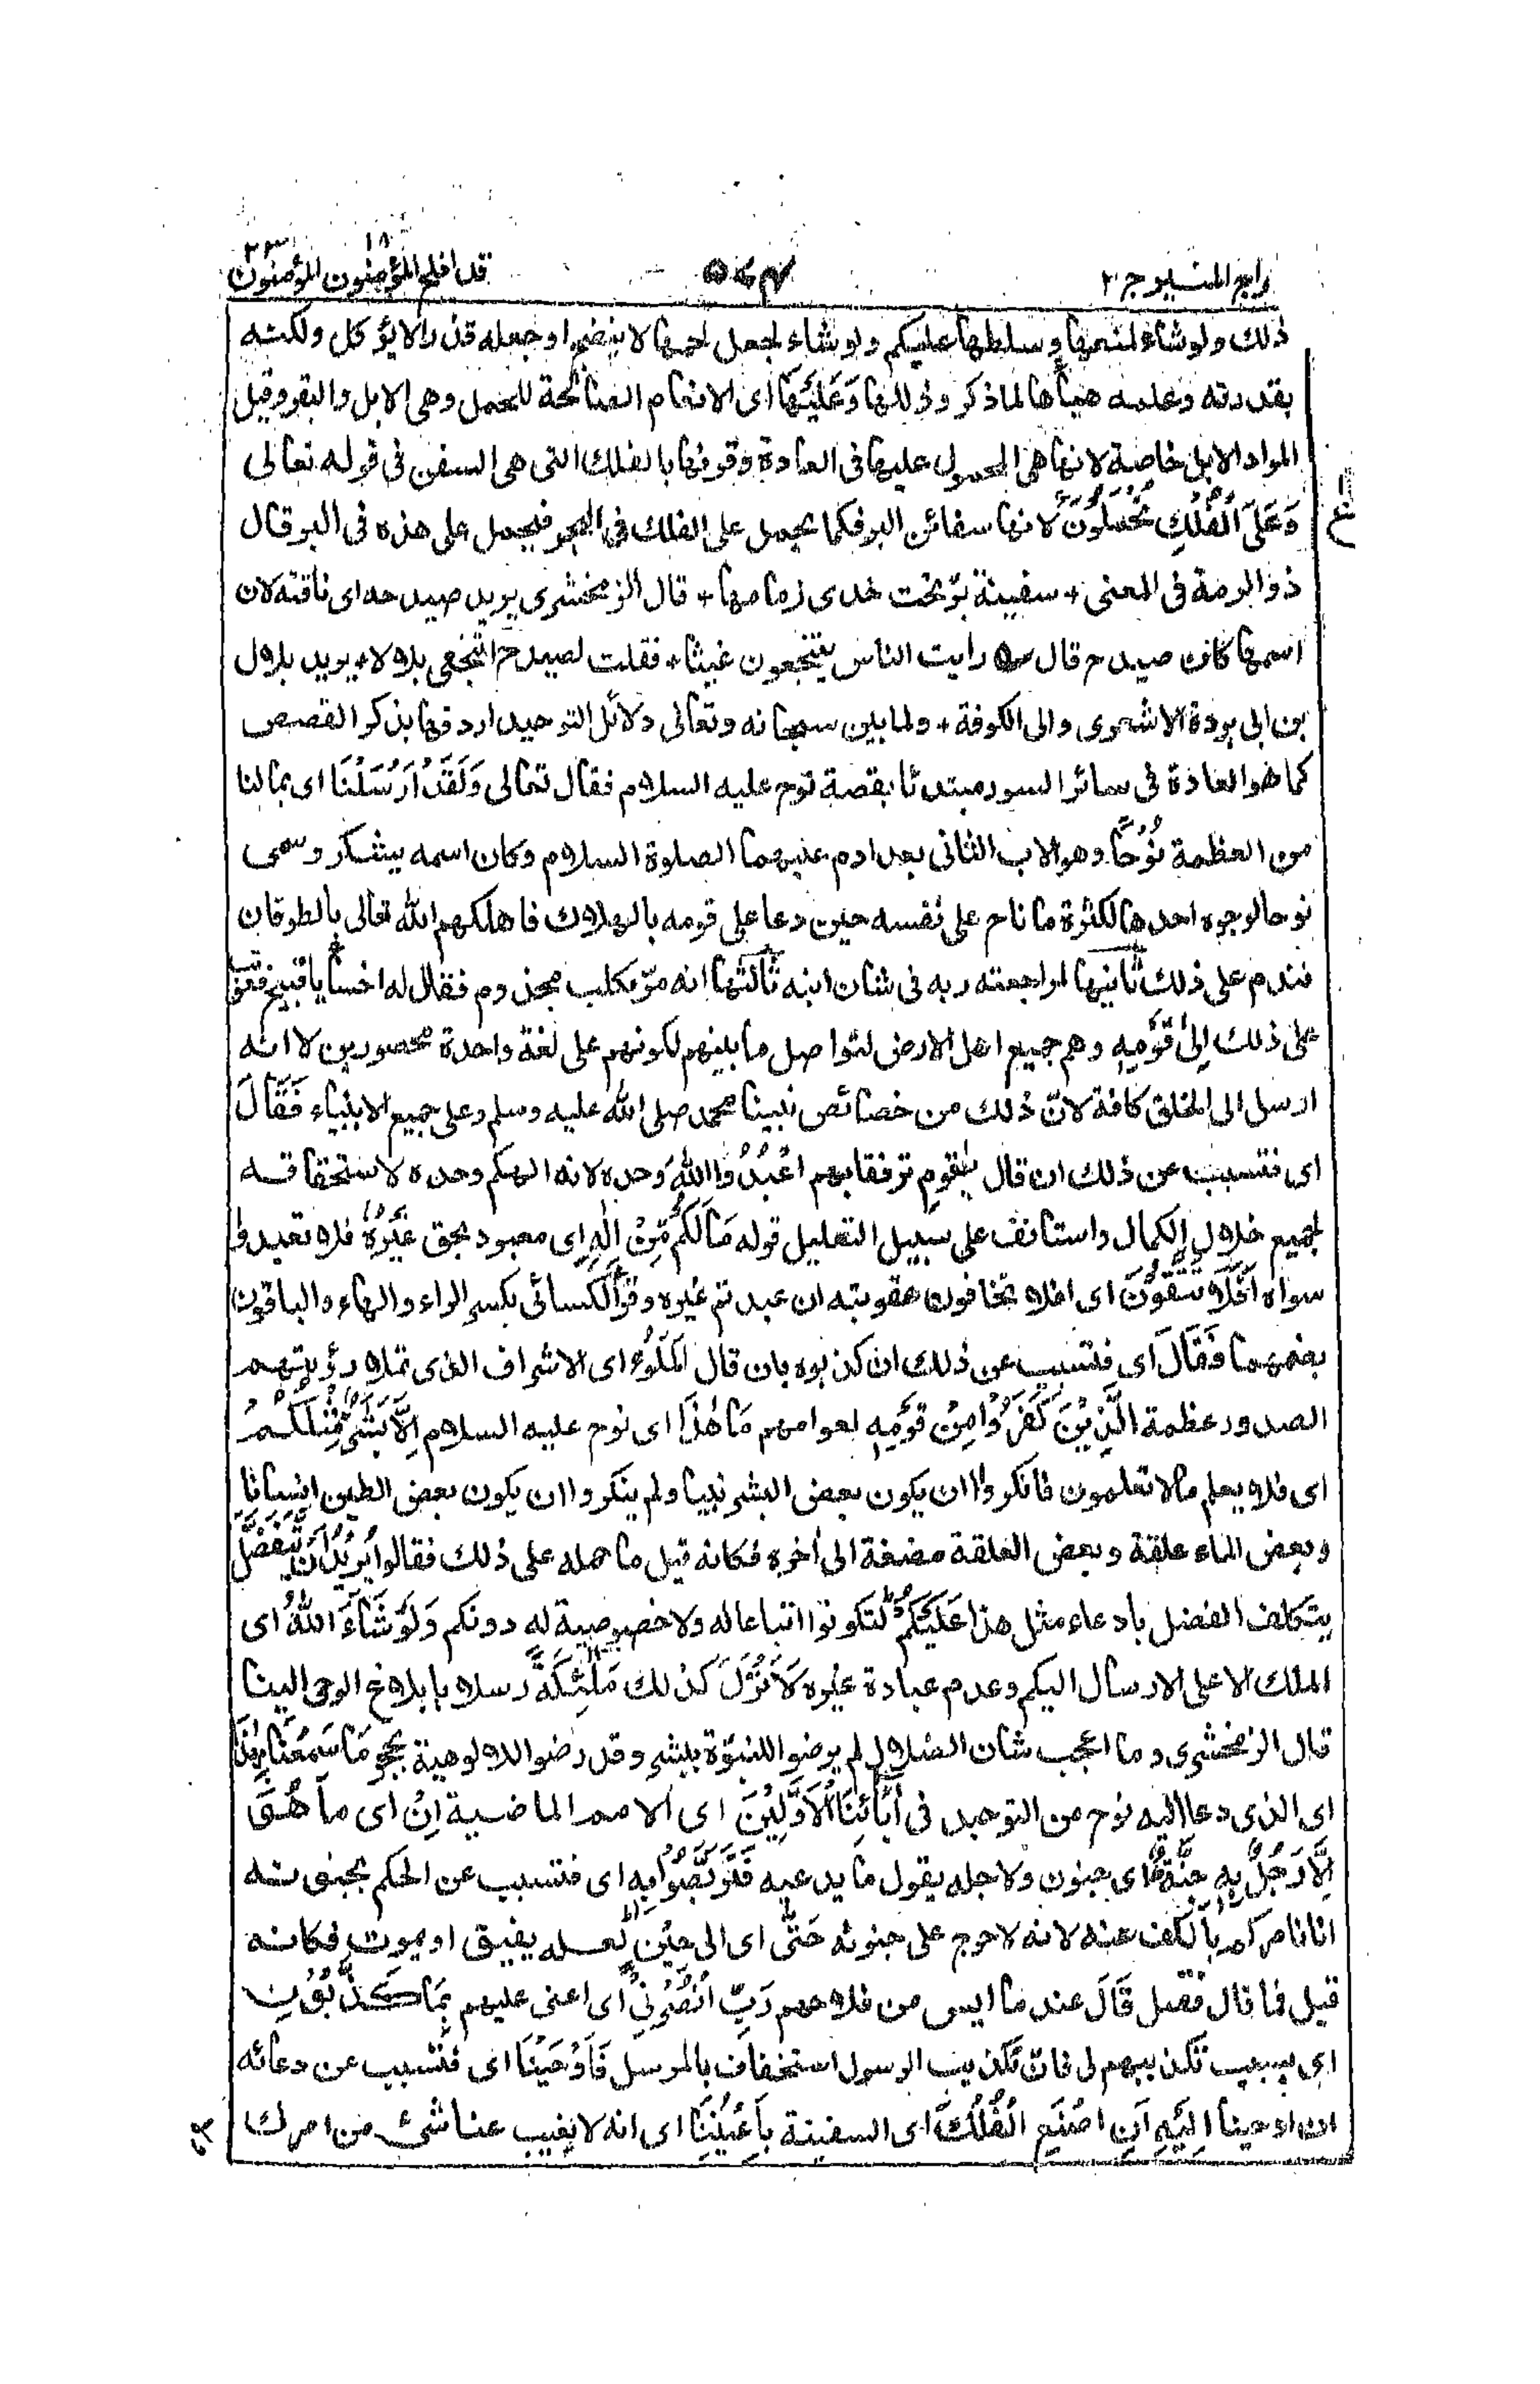 قد افلح المؤمنون المؤمنون
۱۸ ۲۳
۵۷۴
راج المنير ج ۲
ذلك ولو شاء لمنعها وسلطها عليكم ولو شاء لجعل لحمها لا ينضج او جعله قذرا لا يؤكل ولكنه
بقدرته وعلمه هيأها لما ذكر وذللها وَعَلَيْهَا اى الانعام الصالحة للحمل وهى الابل والبقر وقيل
المراد الابل خاصة لانها هى المحمول عليها فى العادة وقرنها بالفلك التى هى السفن فى قوله تعالى
وَعَلَى الْفُلْكِ تُحْمَلُوْنَ لانها سفائن البر فكما يحمل على الفلك فى البحر فيحمل على هذه فى البر قال
ذو الرمة فى المعنى + سفينة بر تحت خدى زمامها + قال الزمخشرى يريد صيدحه اى ناقته لان
اسمها كان صيدح قال رايت الناس ينتجعون غيثا + فقلت لصيدح انتجعى بلالا + يريد بلال
بن ابى بردة الاشعرى والى الكوفة + ولما بين سبحانه وتعالى دلائل التوحيد اردفها بذكر القصص
كما هو العادة فى سائر السور مبتدئا بقصة نوح عليه السلام فقال تعالى وَلَقَدْ اَرْسَلْنَا اى بما لنا
من العظمة نُوْحًا وهو الاب الثانى بعد ادم عليهما الصلوة السلام وكان اسمه يشكر وسمى
نوحا لوجوه احدها لكثرة ما ناح على نفسه حين دعا على قومه بالهلاك فاهلكهم الله تعالى بالطوفان
فندم على ذلك ثانيها لمراجعته ربه فى شان ابنه ثالثها انه مر بكلب مجذوم فقال له اخسأ يا قبيح فعوتب
على ذلك اِلٰى قَوْمِهٖ وهم جميع اهل الارض لتواصل ما بينهم لكونهم على لغة واحدة محصورين لا انه
ارسل الى الخلق كافة لان ذلك من خصائص نبينا محمد صلى الله عليه وسلم وعلى جميع الانبياء فَقَالَ
اى فتسبب عن ذلك ان قال يٰقَوْمِ ترفقا بهم اعْبُدُوا اللهَ وحده لانه الهكم وحده لاستحقاقه
لجميع خلال الكمال واستانف على سبيل التعليل قوله مَا لَكُمْ مِّنْ اِلٰهٍ اى معبود بحق غَيْرُهٗ فلا تعبدوا
سواه اَفَلَا تَتَّقُوْنَ اى افلا تخافون عقوبته ان عبدتم غيره وقرأ الكسائى بكسر الراء والهاء والباقون
بضمهما فَقَالَ اى فتسبب عن ذلك ان كذبوه بان قال الْمَلَؤُا اى الاشراف الذى تملا رؤيتهم
الصدور عظمة الَّذِيْنَ كَفَرُوْا مِنْ قَوْمِهٖ لعوامهم مَا هٰذَا اى نوح عليه السلام اِلَّا بَشَرٌ مِّثْلُكُمْ
اى فلا يعلم ما لا تعلمون فانكروا ان يكون بعض البشر نبيا ولم ينكروا ان يكون بعض الطين انسانا
وبعض الماء علقة وبعض العلقة مضغة الى اخره فكانه قيل ما حمله على ذلك فقالوا يُرِيْدُ اَنْ يَّتَفَضَّلَ
يتكلف الفضل بادعاء مثل هذا عَلَيْكُمْ لتكونوا اتباعا له ولا خصوصية له دونكم وَلَوْ شَآءَ اللهُ اى
الملك الاعلى الارسال اليكم وعدم عبادة غيره لَاَنْزَلَ كذلك مَلٰٓئِكَةً رسلا بابلاغ الوحى الينا
قال الزمخشرى وما اعجب شان الضلال لم يرضوا للنبوة ببشر وقد رضوا للالوهية بحجر مَا سَمِعْنَا بِهٰذَا
اى الذى دعا اليه نوح من التوحيد فى اٰبَآئِنَا الْاَوَّلِيْنَ اى الامم الماضية اِنْ اى ما هُوَ
اِلَّا رَجُلٌ بِهٖ جِنَّةٌ اى جنون ولاجله يقول ما يدعيه فَتَرَبَّصُوْا بِهٖ اى فتسبب عن الحكم بجنونه
انا نامركم بالكف عنه لانه لا حرج على جنونه حَتّٰى اى الى حِيْنٍ لعله يفيق او يموت فكانه
قيل فما قال فقيل قَالَ عندما ايس من فلاحهم رَبِّ انْصُرْنِىْ اى اعنى عليهم بِمَا كَذَّبُوْنِ
اى بسبب تكذيبهم لى فان تكذيب الرسول استخفاف بالمرسل فَاَوْحَيْنَا اى فتسبب عن دعائه
ان اوحينا اِلَيْهِ اَنِ اصْنَعِ الْفُلْكَ اى السفينة بِاَعْيُنِنَا اى انه لا يغيب عنا شئ من امرك